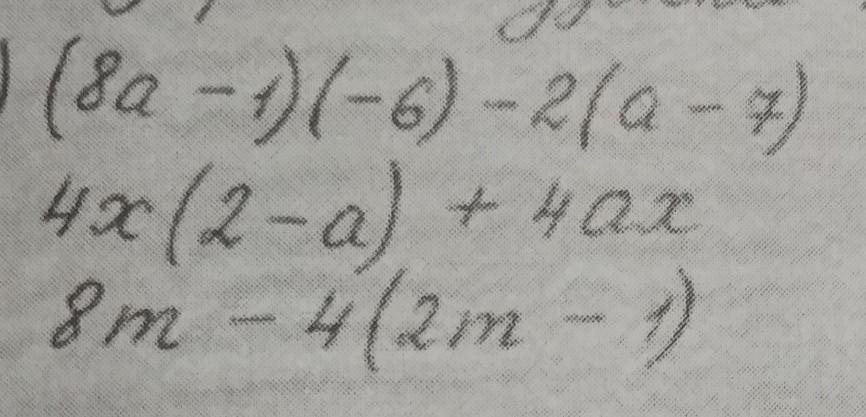 ) (8a - 1)(-6) - 2(a - 7)
4x(2 - a) + 4ax
8m - 4(2m - 1)